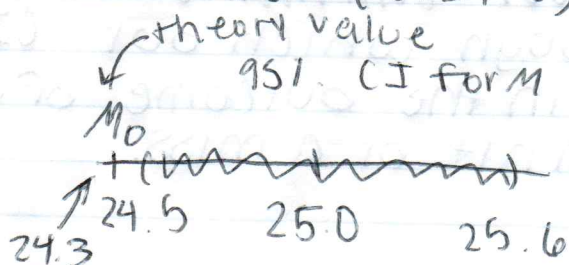 theory value
95% CI for M
M0
24.5 25.0 25.6
24.3